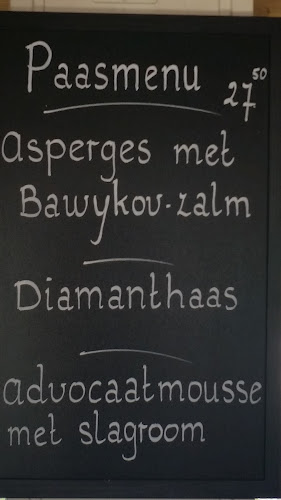 Paasmenu 27 50
asperges met
Bawykov-zalm
Diamanthaas
advocaatmousse
met slagroom